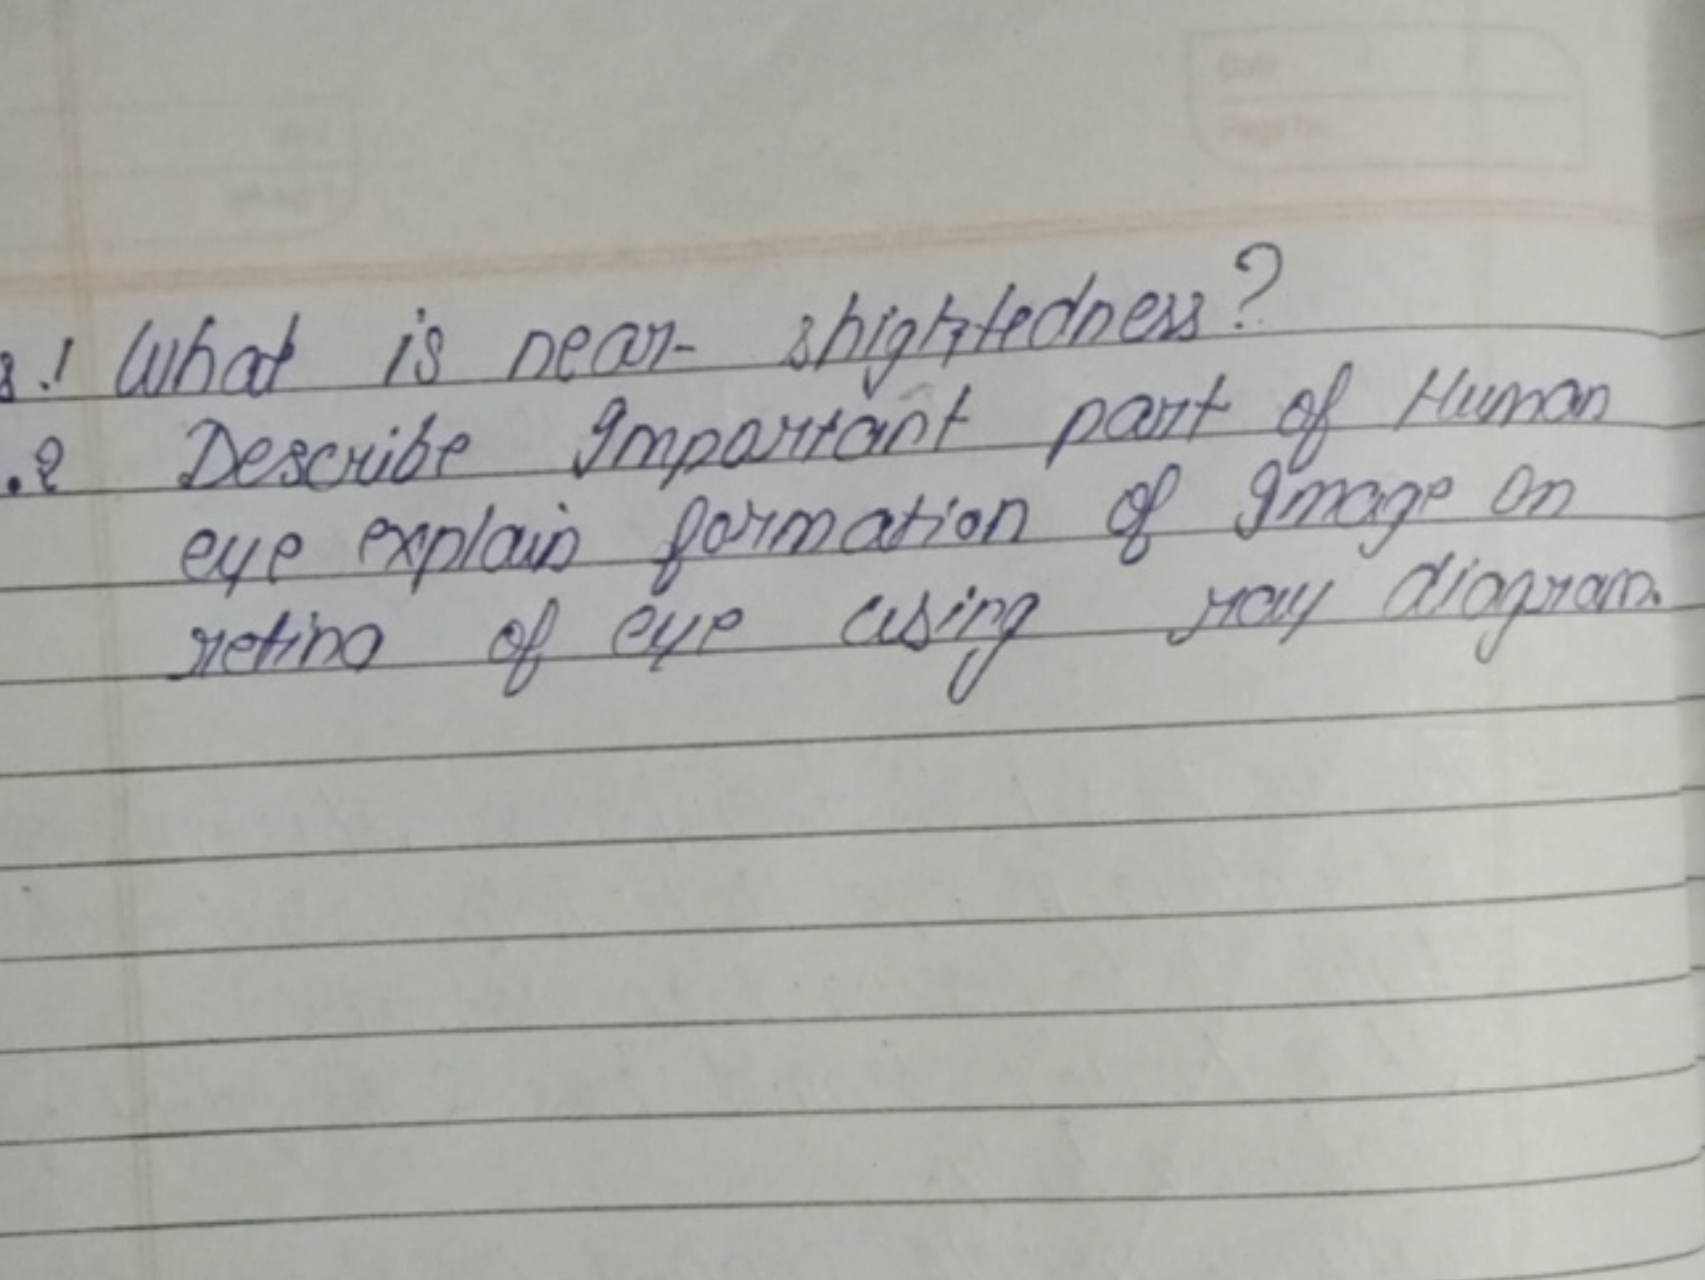 .1 What is near- shightedness?
.2 Describe Important part of Human
eye explain formation of Image on
retina of eye using ray diagram.